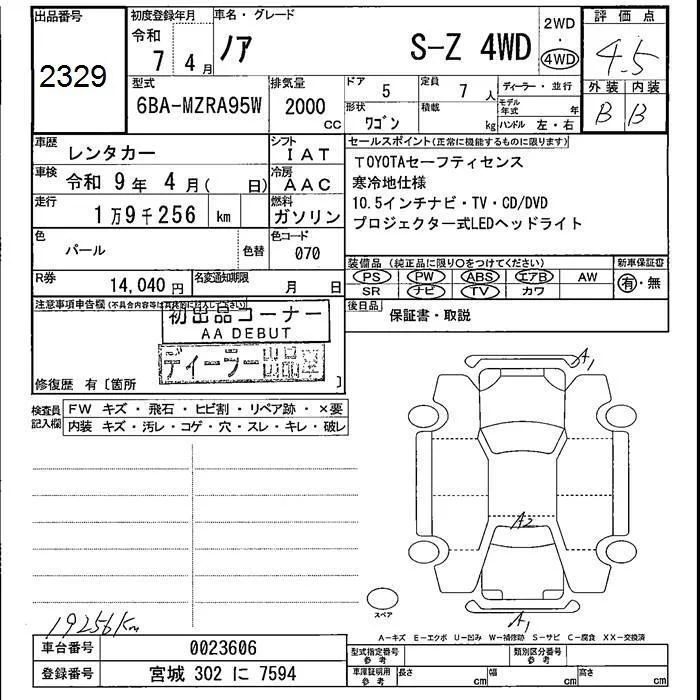 出品番号
2329
初度登録年月
令和
7 4月
車名・グレード
ノア S-Z 4WD
2WD
・
4WD
評価点
4.5
外装 内装
B B
型式
6BA-MZRA95W
排気量
2000 cc
ドア 5
定員 7 人
ディーラー・並行
形状 ワゴン
積載 kg
モデル年式 年
ハンドル 左・右
車歴 レンタカー
シフト IAT
車検 令和 9年 4月( 日)
冷房 AAC
走行 1万9千256 km
燃料 ガソリン
色 パール
色替
色コード 070
R券 14,040円
名変通知期限 月 日
セールスポイント(正常に機能するものに限ります)
TOYOTAセーフティセンス
寒冷地仕様
10.5インチナビ・TV・CD/DVD
プロジェクター式LEDヘッドライト
装備品 (純正品に限り○をつけてください)
新車保証書
PS PW ABS エアB AW
SR ナビ TV カワ
有・無
後日品 保証書・取説
注意事項申告欄(不具合内容等は具体的に記入して下さい)
初出品コーナー
AA DEBUT
ディーラー出品車
修復歴 有〔箇所 〕
検査員記入欄
FW キズ・飛石・ヒビ割・リペア跡・×要
内装 キズ・汚レ・コゲ・穴・スレ・キレ・破レ
A1
A2
A1
スペア
19256Km
A-キズ E-エクボ U-凹み W-補修跡 S-サビ C-腐食 XX-交換済
車台番号 0023606
登録番号 宮城 302 に 7594
型式指定番号 参考
類別区分番号 参考
車庫証明用 参考
長さ cm
幅 cm
高さ cm